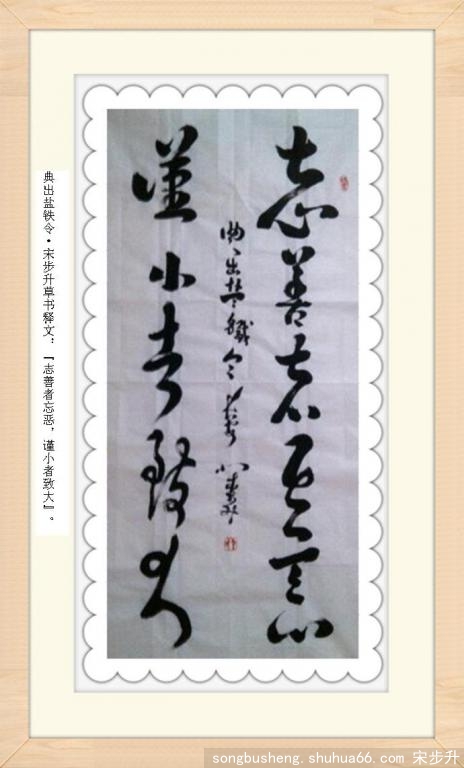 志善者忘恶
谨小者致大
典出盐铁令·宋步升草书释文:『志善者忘恶,谨小者致大』。
songbusheng.shuhua66.com 宋步升